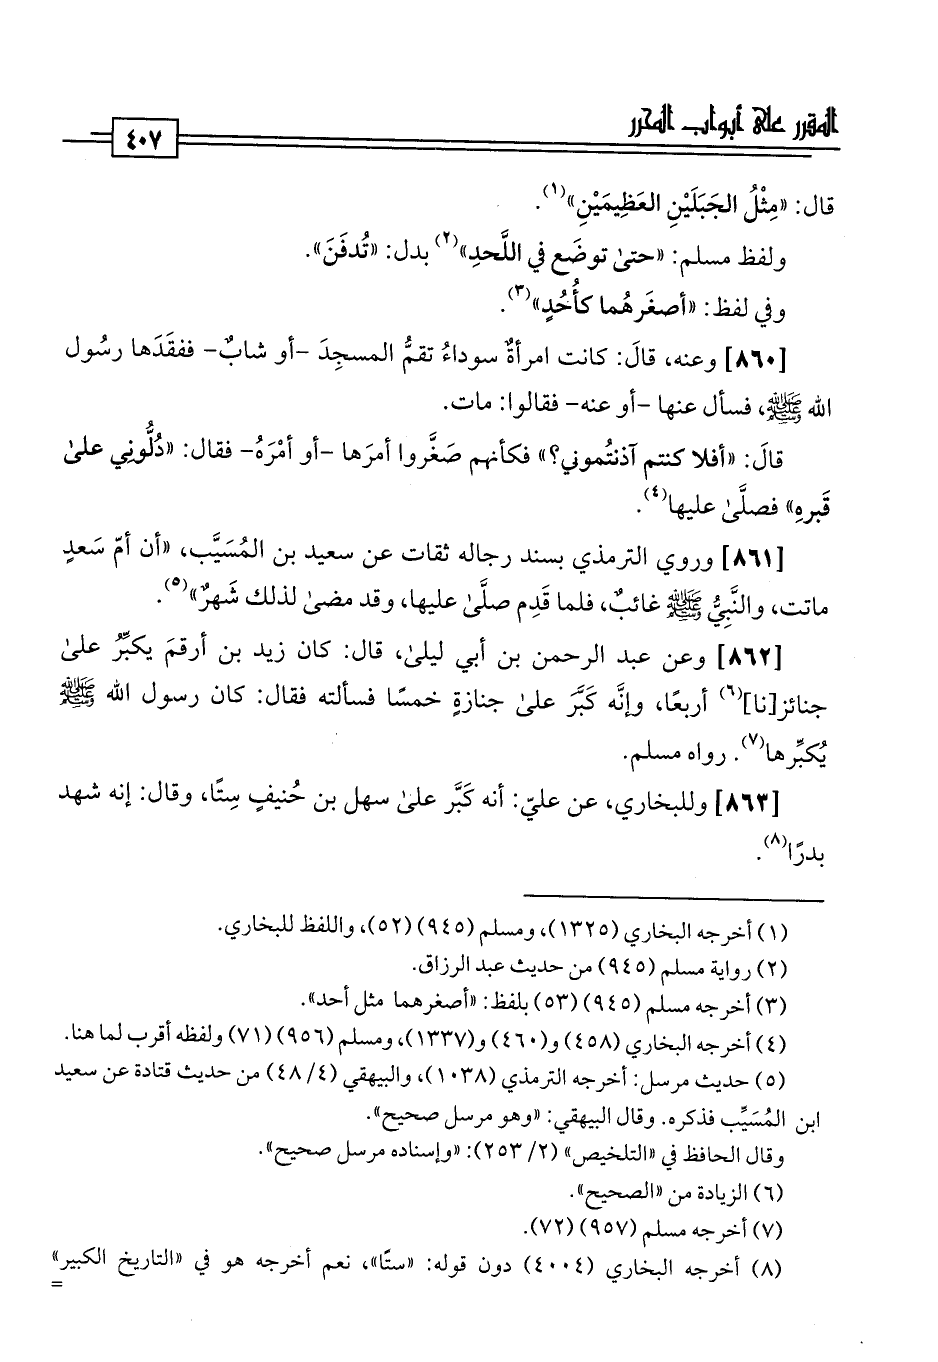 المقرر على أبواب المحرر
٤٠٧
قال: «مِثْلُ الجَبَلَيْنِ العَظِيمَيْنِ»(١).
ولفظ مسلم: «حتىٰ توضَع في اللَّحدِ»(٢) بدل: «تُدفَنَ».
وفي لفظ: «أصغَرهُما كأُحُدٍ»(٣).
[٨٦٠] وعنه، قالَ: كانت امرأةٌ سوداءُ تقمُّ المسجِدَ -أو شابٌ- ففقَدَها رسُول
الله ﷺ، فسأل عنها -أو عنه- فقالوا: مات.
قالَ: «أفلا كنتم آذنتُموني؟» فكأنهم صَغَّروا أمرَها -أو أمْرَهُ- فقال: «دُلُّونِي علىٰ
قَبرهِ» فصلَّىٰ عليها(٤).
[٨٦١] وروي الترمذي بسند رجاله ثقات عن سعيد بن المُسَيَّب، «أن أمّ سَعدٍ
ماتت، والنَّبِيُّ ﷺ غائبٌ، فلما قدِم صلَّىٰ عليها، وقد مضىٰ لذلك شَهرٌ»(٥).
[٨٦٢] وعن عبد الرحمن بن أبي ليلىٰ، قال: كان زيد بن أرقمَ يكبِّرُ علىٰ
جنائز[نا](٦) أربعًا، وإنَّه كَبَّرَ علىٰ جنازةٍ خمسًا فسألته فقال: كان رسول الله ﷺ
يُكبِّرها(٧). رواه مسلم.
[٨٦٣] وللبخاري، عن عليّ: أنه كَبَّر علىٰ سهل بن حُنيفٍ سِتًا، وقال: إنه شهد
بدرًا(٨).
(١) أخرجه البخاري (١٣٢٥)، ومسلم (٩٤٥) (٥٢)، واللفظ للبخاري.
(٢) رواية مسلم (٩٤٥) من حديث عبد الرزاق.
(٣) أخرجه مسلم (٩٤٥) (٥٣) بلفظ: «أصغرهما مثل أحد».
(٤) أخرجه البخاري (٤٥٨) و(٤٦٠) و(١٣٣٧)، ومسلم (٩٥٦) (٧١) ولفظه أقرب لما هنا.
(٥) حديث مرسل: أخرجه الترمذي (١٠٣٨)، والبيهقي (٤/ ٤٨) من حديث قتادة عن سعيد
ابن المُسَيِّب فذكره. وقال البيهقي: «وهو مرسل صحيح».
وقال الحافظ في «التلخيص» (٢/ ٢٥٣): «وإسناده مرسل صحيح».
(٦) الزيادة من «الصحيح».
(٧) أخرجه مسلم (٩٥٧) (٧٢).
(٨) أخرجه البخاري (٤٠٠٤) دون قوله: «ستًا»، نعم أخرجه هو في «التاريخ الكبير»
=